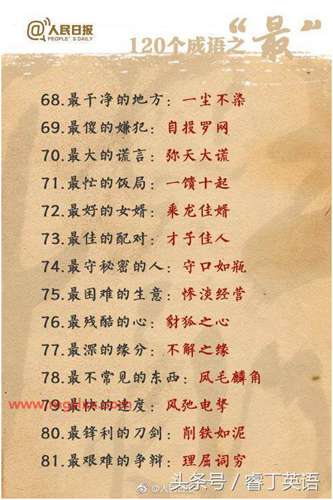 @人民日报
PEOPLE'S DAILY
120个成语之“最”
68.最干净的地方：一尘不染
69.最傻的嫌犯：自报罗网
70.最大的谎言：弥天大谎
71.最忙的饭局：一馈十起
72.最好的女婿：乘龙佳婿
73.最佳的配对：才子佳人
74.最守秘密的人：守口如瓶
75.最困难的生意：惨淡经营
76.最残酷的心：豺狐之心
77.最深的缘分：不解之缘
78.最不常见的东西：凤毛麟角
79.最快的速度：风弛电掣
80.最锋利的刀剑：削铁如泥
81.最艰难的争辩：理屈词穷
@人民日报
头条号/睿丁英语